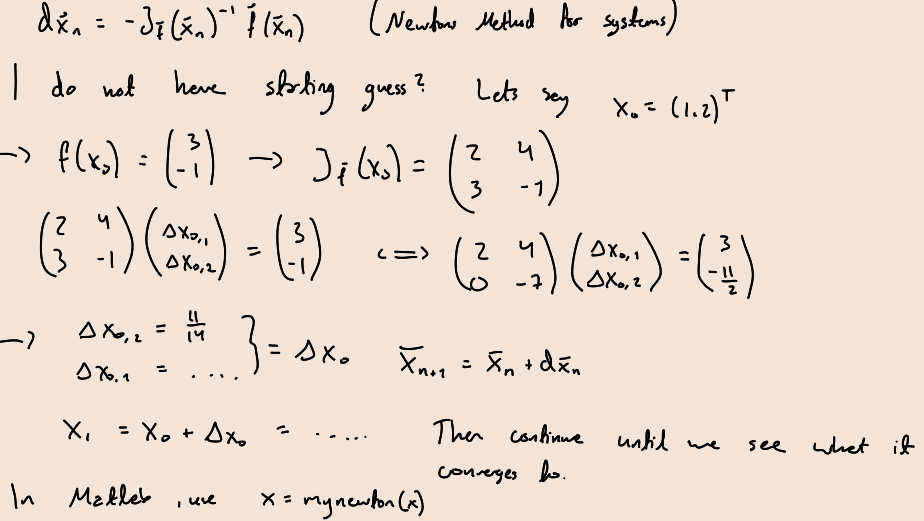 dx̄ₙ = -J_f̄(x̄ₙ)⁻¹ f̄(x̄ₙ) (Newtons Method for systems)
I do not have starting guess? Lets say x₀ = (1.2)ᵀ
→ f(x₀) = (3 -1) → J_f̄(x₀) = (2 4 3 -1)
(2 4 3 -1)(Δx₀,₁ Δx₀,₂) = (3 -1) <=> (2 4 0 -7)(Δx₀,₁ Δx₀,₂) = (3 -11/2)
→ Δx₀,₂ = 11/14
Δx₀,₁ = .... } = Δx₀ x̄ₙ₊₁ = x̄ₙ + dx̄ₙ
X₁ = X₀ + Δx₀ = ..... Then continue until we see what it
converges to.
In Matlab, use x = mynewton(x)